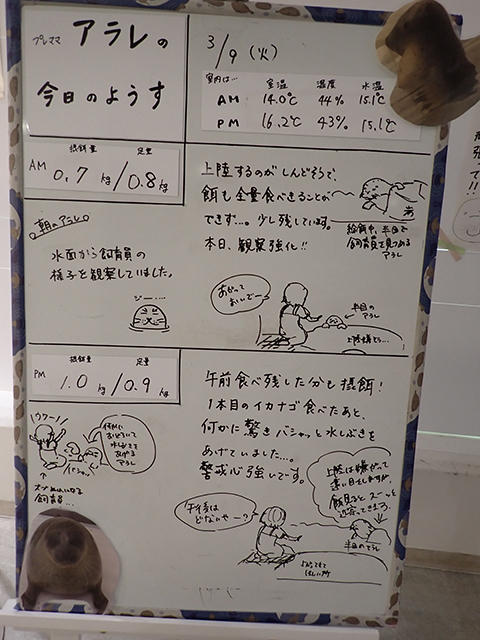 プレママ アラレの
今日のようす
3/9(火)
室内は…
室温 湿度 水温
AM 14.0℃ 44% 15.1℃
PM 16.2℃ 43% 15.1℃
摂餌量 定量
AM 0.7kg/0.8kg
上陸するのがしんどそうで、
餌も全量食べきることが
できず…。少し残しています。
本日、観察強化!!
給餌中、半目で
飼育員を見つめる
アラレ
朝のアラレ
水面から飼育員の
様子を観察していました。
ジー…
あがって
おいでー
半目の
アラレ
上陸嫌そう…
摂餌量 定量
PM 1.0kg/0.9kg
午前食べ残した分も摂餌!
1本目のイカナゴ食べたあと、
何かに驚きバシャッと水しぶきを
あげていました…。
警戒心強いです。
ワワー!!
バシャッ
何かに
おどろいて
水しぶきを
あげる
アラレ
飼育員…
上陸は嫌がって
遠い目をしますが、
餌見るとスーッと
近寄ってきます。
午後は
どないやー?
半目のアラレ